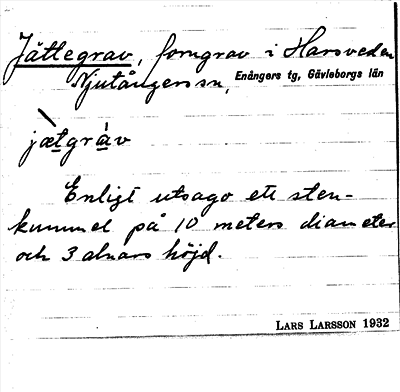 Jättegrav, forngrav i Harsveden
Njutångers sn, Enångers tg, Gävleborgs län
jætgràv
Enligt utsago ett sten-
kummel på 10 meters diameter
och 3 alnars höjd.
LARS LARSSON 1932